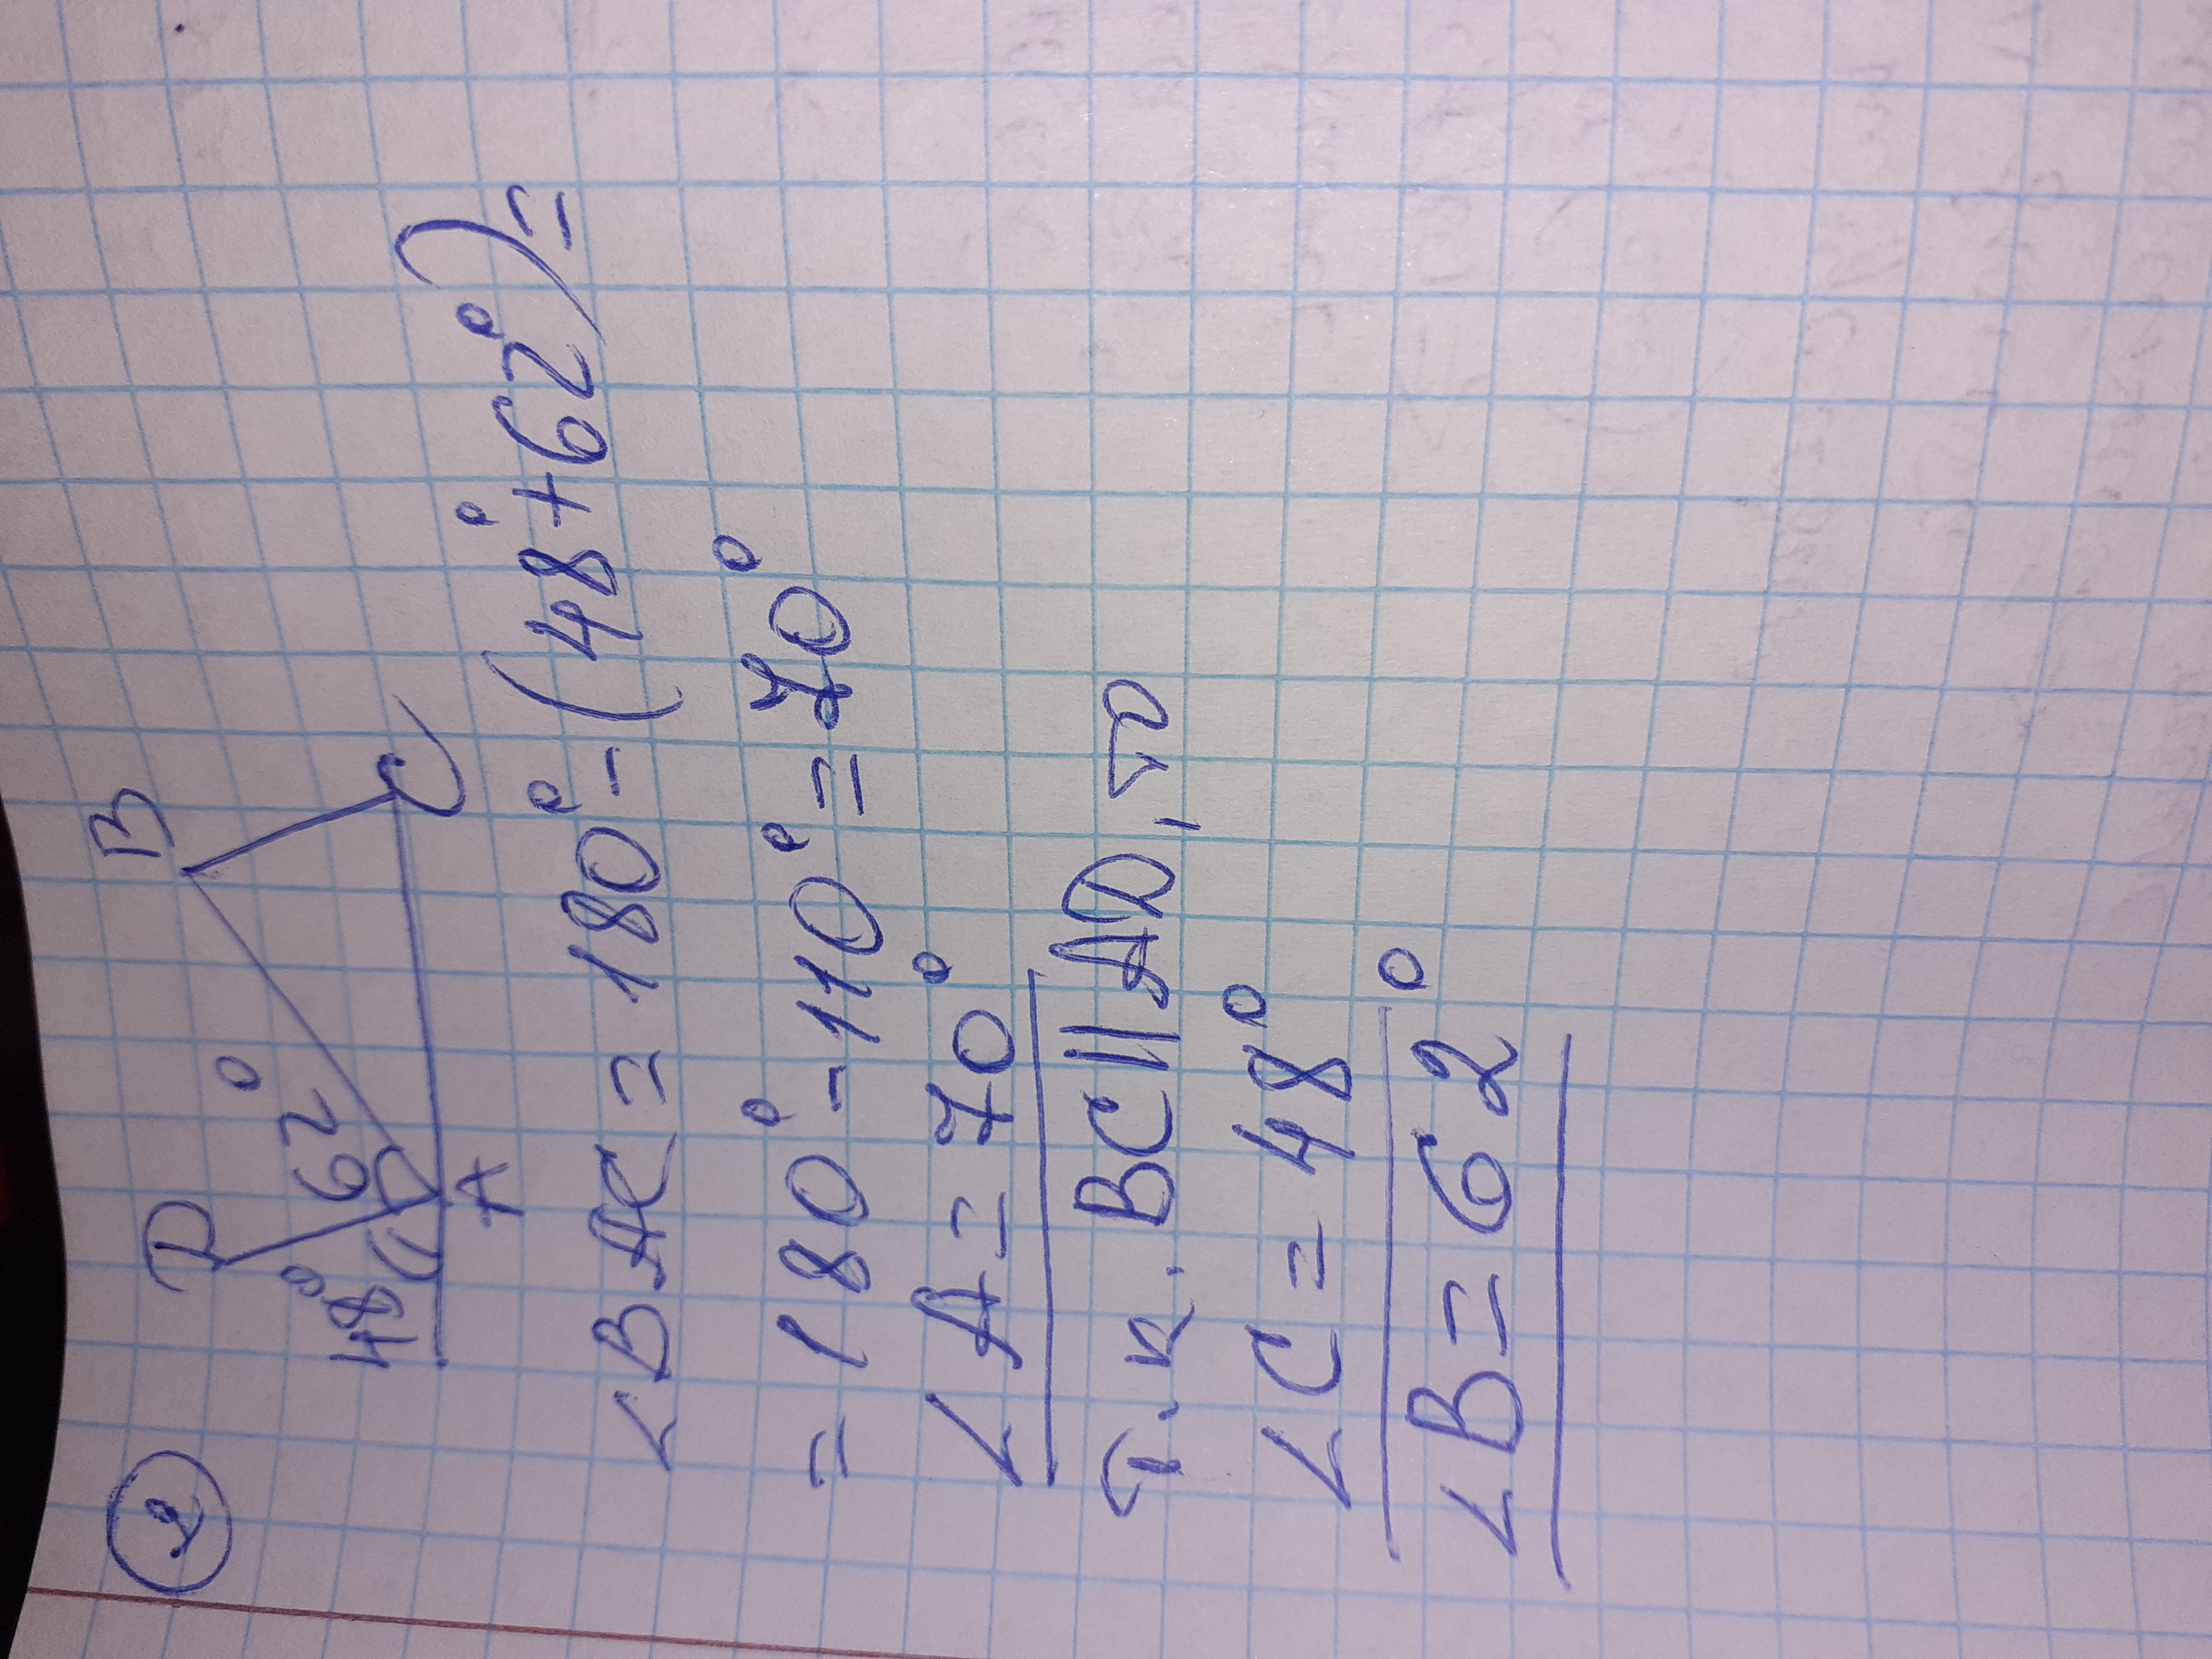 2
D B
48° 62°
A C
∠BAC = 180° - (48° + 62°) =
= 180° - 110° = 70°
∠A = 70°
Т.к. BC || AD, то
∠C = 48°
∠B = 62°